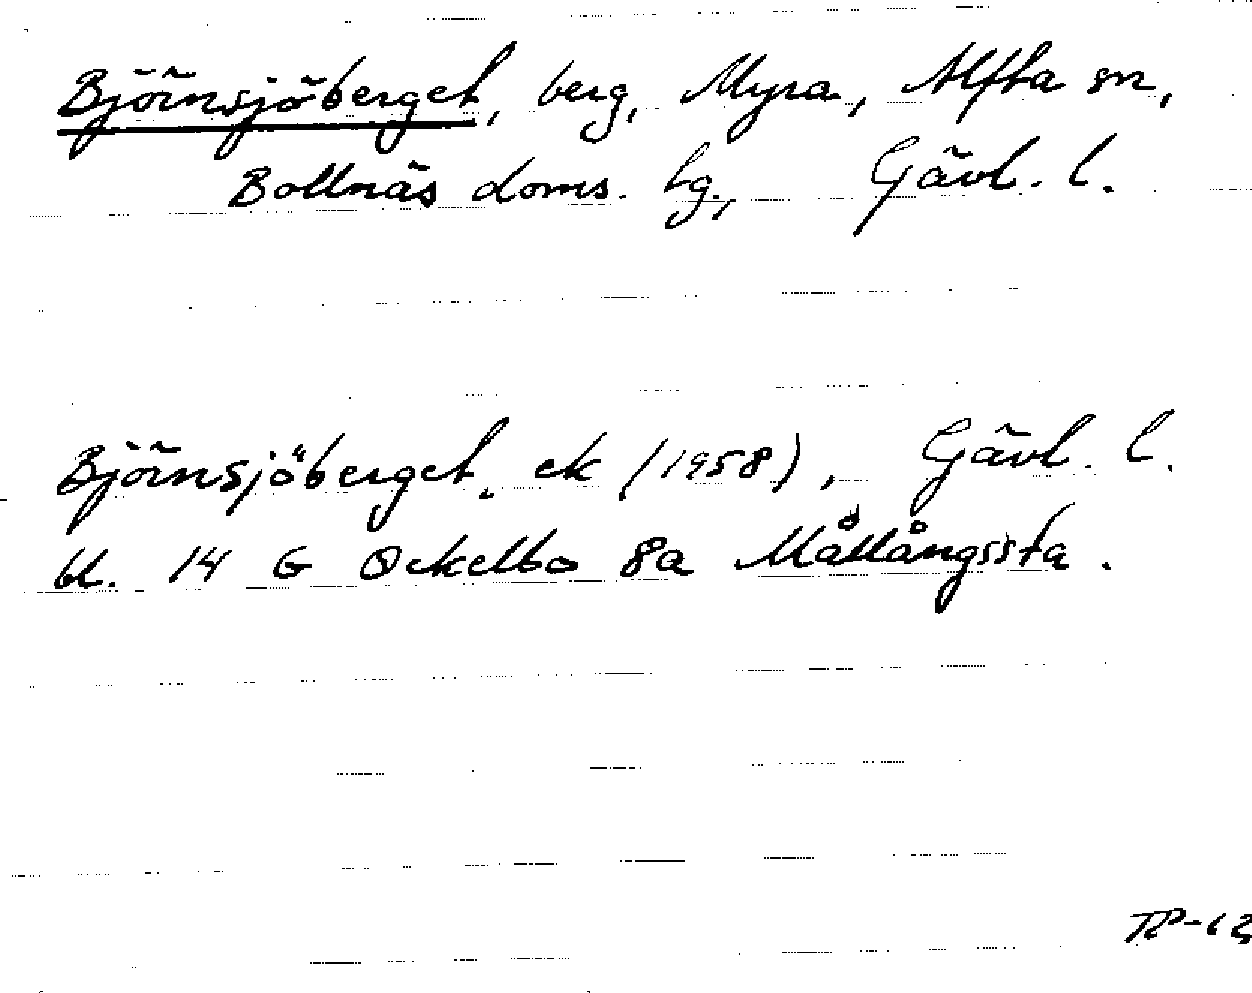 Björnsjöberget, berg, Myra, Alfta sn,
Bollnäs doms. hg., Gävl. l.
Björnsjöberget, ek (1958), Gävl. l.
bl. 14 G Ockelbo 8a Mållångssta.